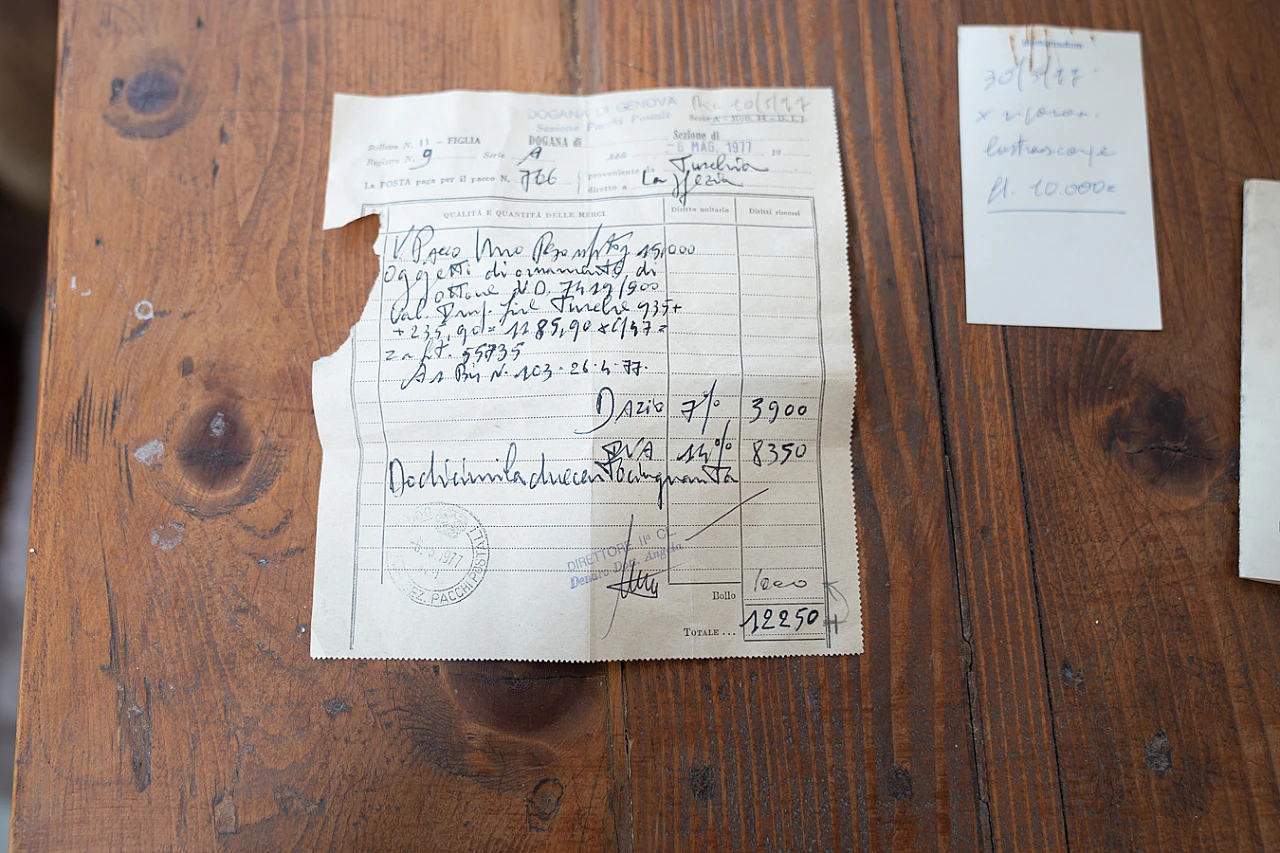 DOGANA DI GENOVA
Sezione Pacchi Postali
10/5/77
Serie A
Bolletta N. 11 - FIGLIA
DOGANA di
Sezione di
Registro N. 9 Serie A
- 6 MAG. 1977 19
La POSTA paga per il pacco N. 766
proveniente da Turchia
diretto a La Spezia
QUALITÀ E QUANTITÀ DELLE MERCI
Diritto unitario
Diritti riscossi
1 Pacco Uno 15,000
oggetti di ornamento di
ottone V.D. 7419/900
Val. Turche 935+
+235,90= 1185,90 x £/47=
55735
N. 103-26-4-77.
Dazio 7% 3900
IVA 14% 8350
Dodicimiladuecentocinquanta
-6.5.1977
SEZ. PACCHI POSTALI
DIRETTORE IIª CL.
Denaro Dott. Angelo
Bollo 1000
TOTALE ... 12250
30/5/77
x
lustrascarpe
10.000=